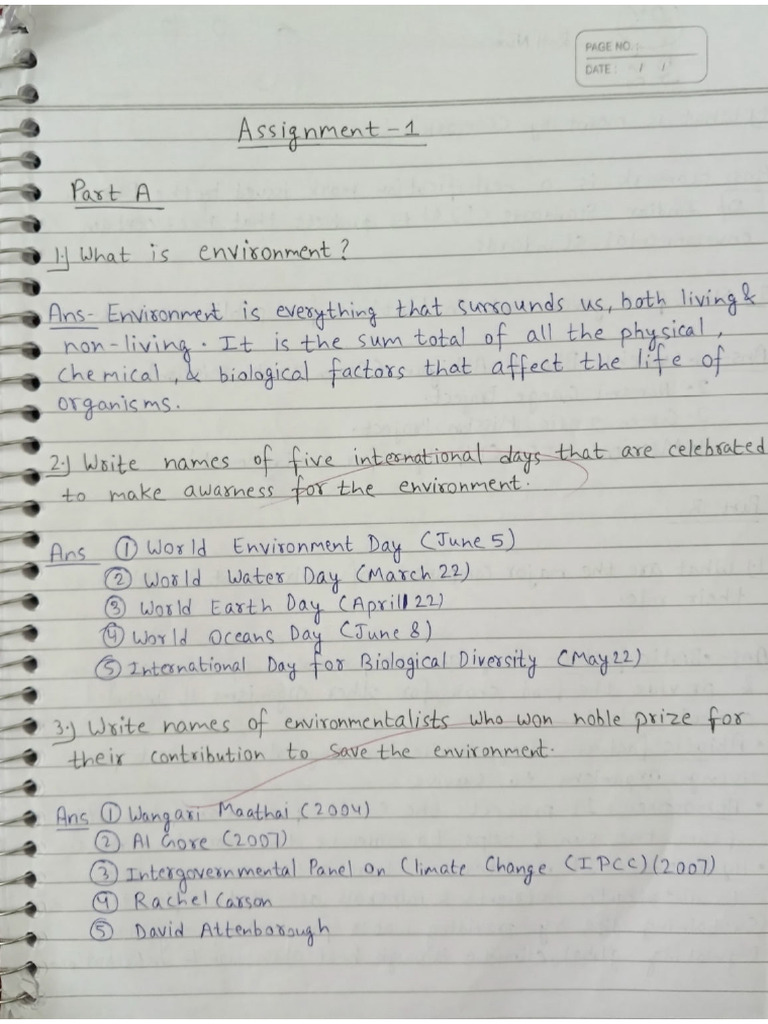 PAGE NO.:
DATE: / /
Assignment-1
Part A
1.) What is environment?
Ans- Environment is everything that surrounds us, both living &
non-living. It is the sum total of all the physical,
chemical, & biological factors that affect the life of
organisms.
2.) Write names of five international days that are celebrated
to make awarness for the environment.
Ans ① World Environment Day (June 5)
② World Water Day (March 22)
③ World Earth Day (April 22)
④ World Oceans Day (June 8)
⑤ International Day for Biological Diversity (May 22)
3.) Write names of environmentalists who won noble prize for
their contribution to save the environment.
Ans ① Wangari Maathai (2004)
② Al Gore (2007)
③ Intergovernmental Panel on Climate Change (IPCC) (2007)
④ Rachel Carson
⑤ David Attenborough